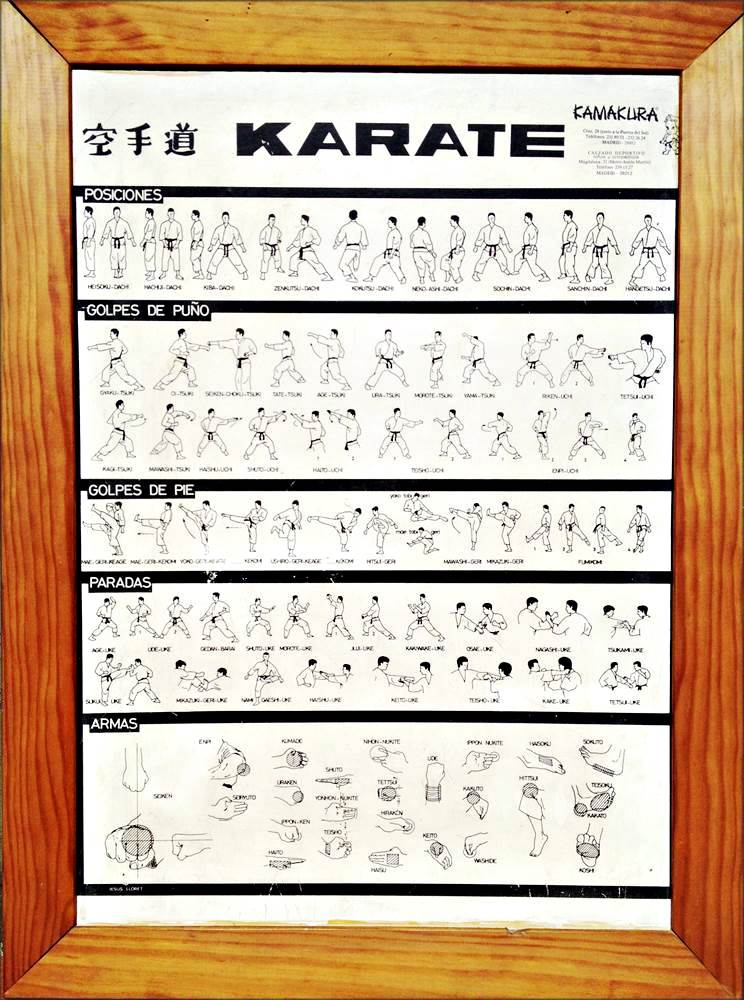 空手道 KARATE
KAMAKURA
MADRID - 28012
CALZADO DEPORTIVO
MADRID - 28012
POSICIONES
HEISOKU-DACHI HACHIJI-DACHI KIBA-DACHI ZENKUTSU-DACHI KOKUTSU-DACHI NEKO-ASHI-DACHI SOCHIN-DACHI SANCHIN-DACHI HANGETSU-DACHI
GOLPES DE PUÑO
GYAKU-TSUKI OI-TSUKI SEIKEN-CHOKU-TSUKI TATE-TSUKI AGE-TSUKI URA-TSUKI MOROTE-TSUKI YAMA-TSUKI RIKEN-UCHI TETSUI-UCHI
1 2
KAGI-TSUKI MAWASHI-TSUKI HAISHU-UCHI SHUTO-UCHI HAITO-UCHI TEISHO-UCHI ENPI-UCHI
1 2 1 2 3 1 2 3 4
GOLPES DE PIE
yoko tobi geri
mae tobi geri
MAE-GERI-KEAGE MAE-GERI-KEKOMI YOKO-GERI-KEAGE KEKOMI USHIRO-GERI-KEAGE KEKOMI HITSUI-GERI MAWASHI-GERI MIKAZUKI-GERI FUMIKOMI
1 2 3 4
PARADAS
AGE-UKE UDE-UKE GEDAN-BARAI SHUTO-UKE MOROTE-UKE JUJI-UKE KAKIWAKE-UKE OSAE-UKE NAGASHI-UKE TSUKAMI-UKE
SUKUI-UKE MIKAZUKI-GERI-UKE NAMI GAESHI-UKE HAISHU-UKE KEITO-UKE TEISHO-UKE KAKE-UKE TETSUI-UKE
ARMAS
ENPI KUMADE NIHON-NUKITE IPPON NUKITE HAISOKU SOKUTO
SHUTO UDE
URAKEN TETTSUI HITTSUI TEISOKU
SEIKEN SEIRYUTO YONHON-NUKITE KAKUTO
HIRAKEN KAKATO
IPPON-KEN TEISHO KEITO
HAITO HAISU WASHIDE KOSHI
JESUS LLORET